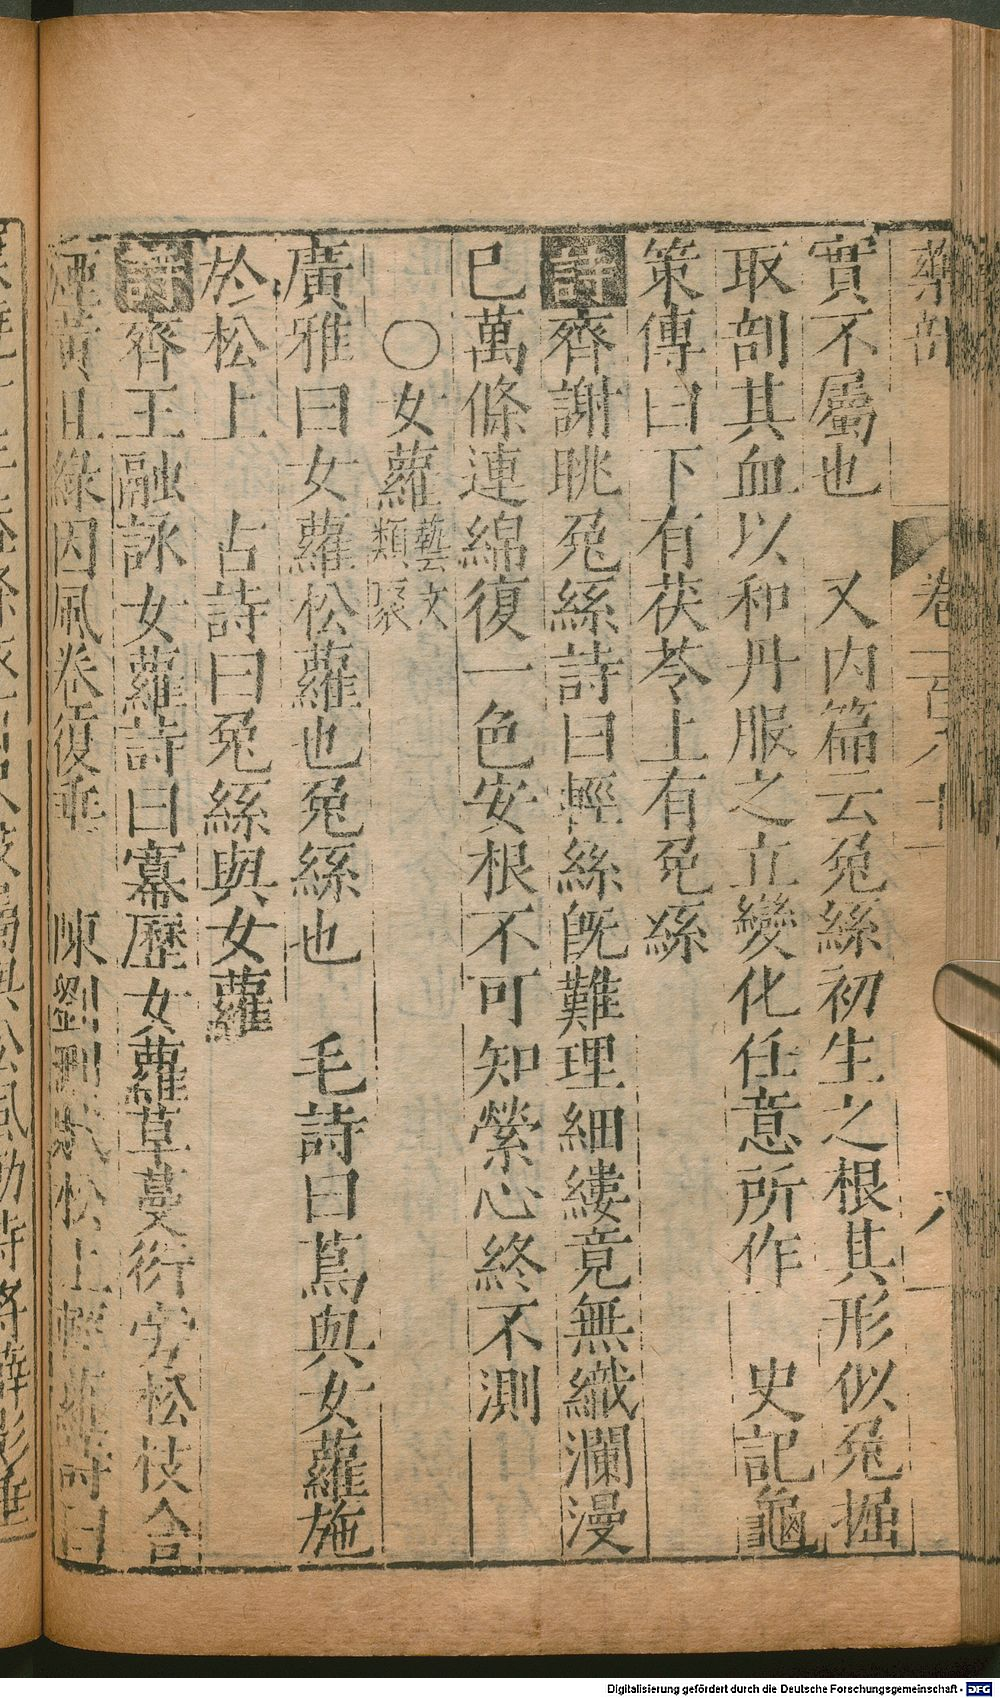 卷一百八十
八
實不屬也　又內篇云兔絲初生之根其形似兔掘
取剖其血以和丹服之立變化任意所作　史記龜
策傳曰下有茯苓上有兔絲
詩齊謝眺兔絲詩曰輕絲旣難理細縷竟無織瀾漫
已萬條連綿復一色安根不可知縈心終不測
○女蘿藝文類聚
廣雅曰女蘿松蘿也兔絲也　毛詩曰蔦與女蘿施
於松上　古詩曰兔絲與女蘿
詩齊王融詠女蘿詩曰冪歷女蘿草蔓衍旁松枝含
煙黃且綠因風卷復垂　陳劉刪賦松上輕蘿詩曰
Digitalisierung gefördert durch die Deutsche Forschungsgemeinschaft - DFG